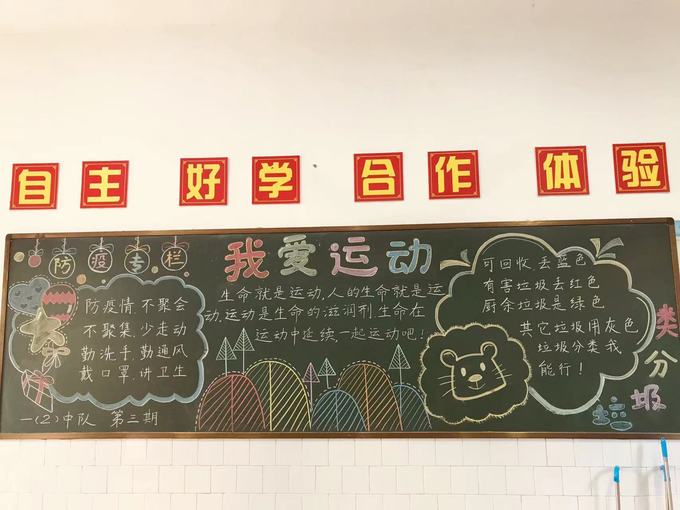 自主 好学 合作 体验
防疫专栏
防疫情,不聚会
不聚集,少走动
勤洗手,勤通风
戴口罩,讲卫生
一(2)中队 第三期
我爱运动
生命就是运动,人的生命就是运
动,运动是生命的滋润剂生命在
运动中延续一起运动吧!
可回收,丢蓝色
有害垃圾去红色
厨余垃圾是绿色
其它垃圾用灰色
垃圾分类我
能行!
垃圾分类